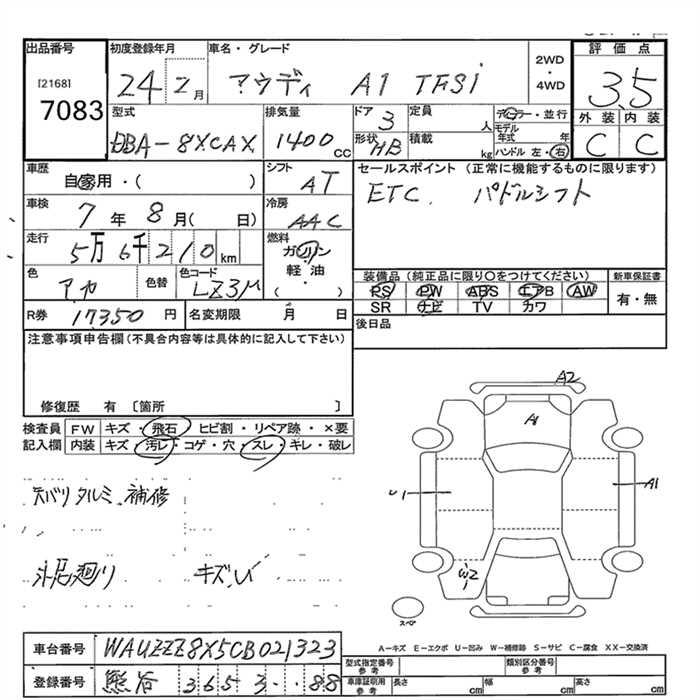 出品番号 初度登録年月 車名・グレード 2WD・4WD 評価点
[2168] 7083 24 2月 アウディ A1 TFSi 3.5
型式 排気量 ドア 定員 ディーラー・並行 外装 内装
DBA-8XCAX 1400cc 3 人 モデル年式 年 C C
形状 HB 積載 kg ハンドル 左・右
車歴 シフト セールスポイント(正常に機能するものに限ります)
自家用・( ) AT ETC. パドルシフト
車検 7年 8月( 日) 冷房 AAC
走行 5万6千210km 燃料 ガソリン
軽油
( )
色 アカ 色替 色コード LZ3M
装備品(純正品に限り○をつけてください) 新車保証書
PS PW ABS エアB AW 有・無
SR ナビ TV カワ
R券 17350円 名変期限 月 日 後日品
注意事項申告欄(不具合内容等は具体的に記入して下さい)
修復歴 有〔箇所 〕
検査員 FW キズ・飛石・ヒビ割・リペア跡・×要
記入欄 内装 キズ・汚レ・コゲ・穴・スレ・キレ・破レ
天バリ タルミ 補修
キズ、U
A2
A1
U1 A1
W2
スペア
A-キズ E-エクボ U-凹み W-補修跡 S-サビ C-腐食 XX-交換済
車台番号 WAUZZZ8X5CB021323
登録番号 熊谷 365 88
型式指定番号 参考 類別区分番号 参考
車庫証明用 参考 長さ cm 幅 cm 高さ cm